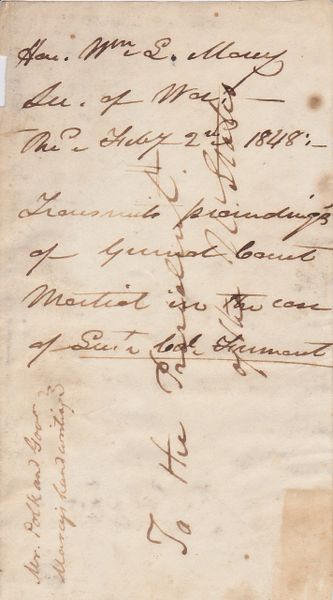 Hon. Wm L. Marcy
Sec. of War —
Rec'd Feby 2nd 1848:—
Transmits proceedings
of General Court
Martial in the case
of Lieut Col. Fremont
To the President
of the U. States
Mr. Polk and Gov
Marcy's handwriting